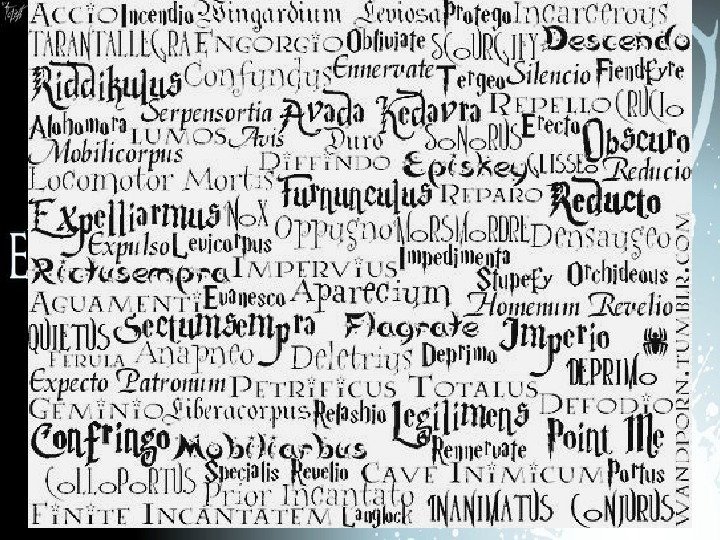 Accio Incendio Wingardium Leviosa Protego Incarcerous
TARANTALLEGRA ENGORGIO Obliviate SCOURGIFY Descendo
Riddikulus Confundus Ennervate Tergeo Silencio Fiendfyre
Serpensortia Avada Kedavra REPELLO CRUCIO
Alohomora LUMOS Avis Duro SONORUS Erecto Obscuro
Mobilicorpus DIFFINDO Episkey GLISSEO Reducio
Locomotor Mortis Furnunculus REPARO Reducto
Expelliarmus NOX Oppugno MORSMORDRE Densaugeo
Expulso Levicorpus Impedimenta
Rictusempra IMPERVIUS Stupefy Orchideous
AGUAMENTI Evanesco Aparecium Homenum Revelio
QUIETUS Sectumsempra Flagrate Imperio
FERULA Anapneo Deletrius Deprimo DEPRIMO
Expecto Patronum PETRIFICUS TOTALUS
GEMINIO Liberacorpus Relashio Legilimens DEFODIO
Confringo Mobiliarbus Rennervate Point Me
COLLOPORTUS Specialis Revelio CAVE INIMICUM Portus
Prior Incantato
FINITE INCANTATEM Langlock INANIMATUS CONJURUS
WANDPORN.TUMBLR.COM
E